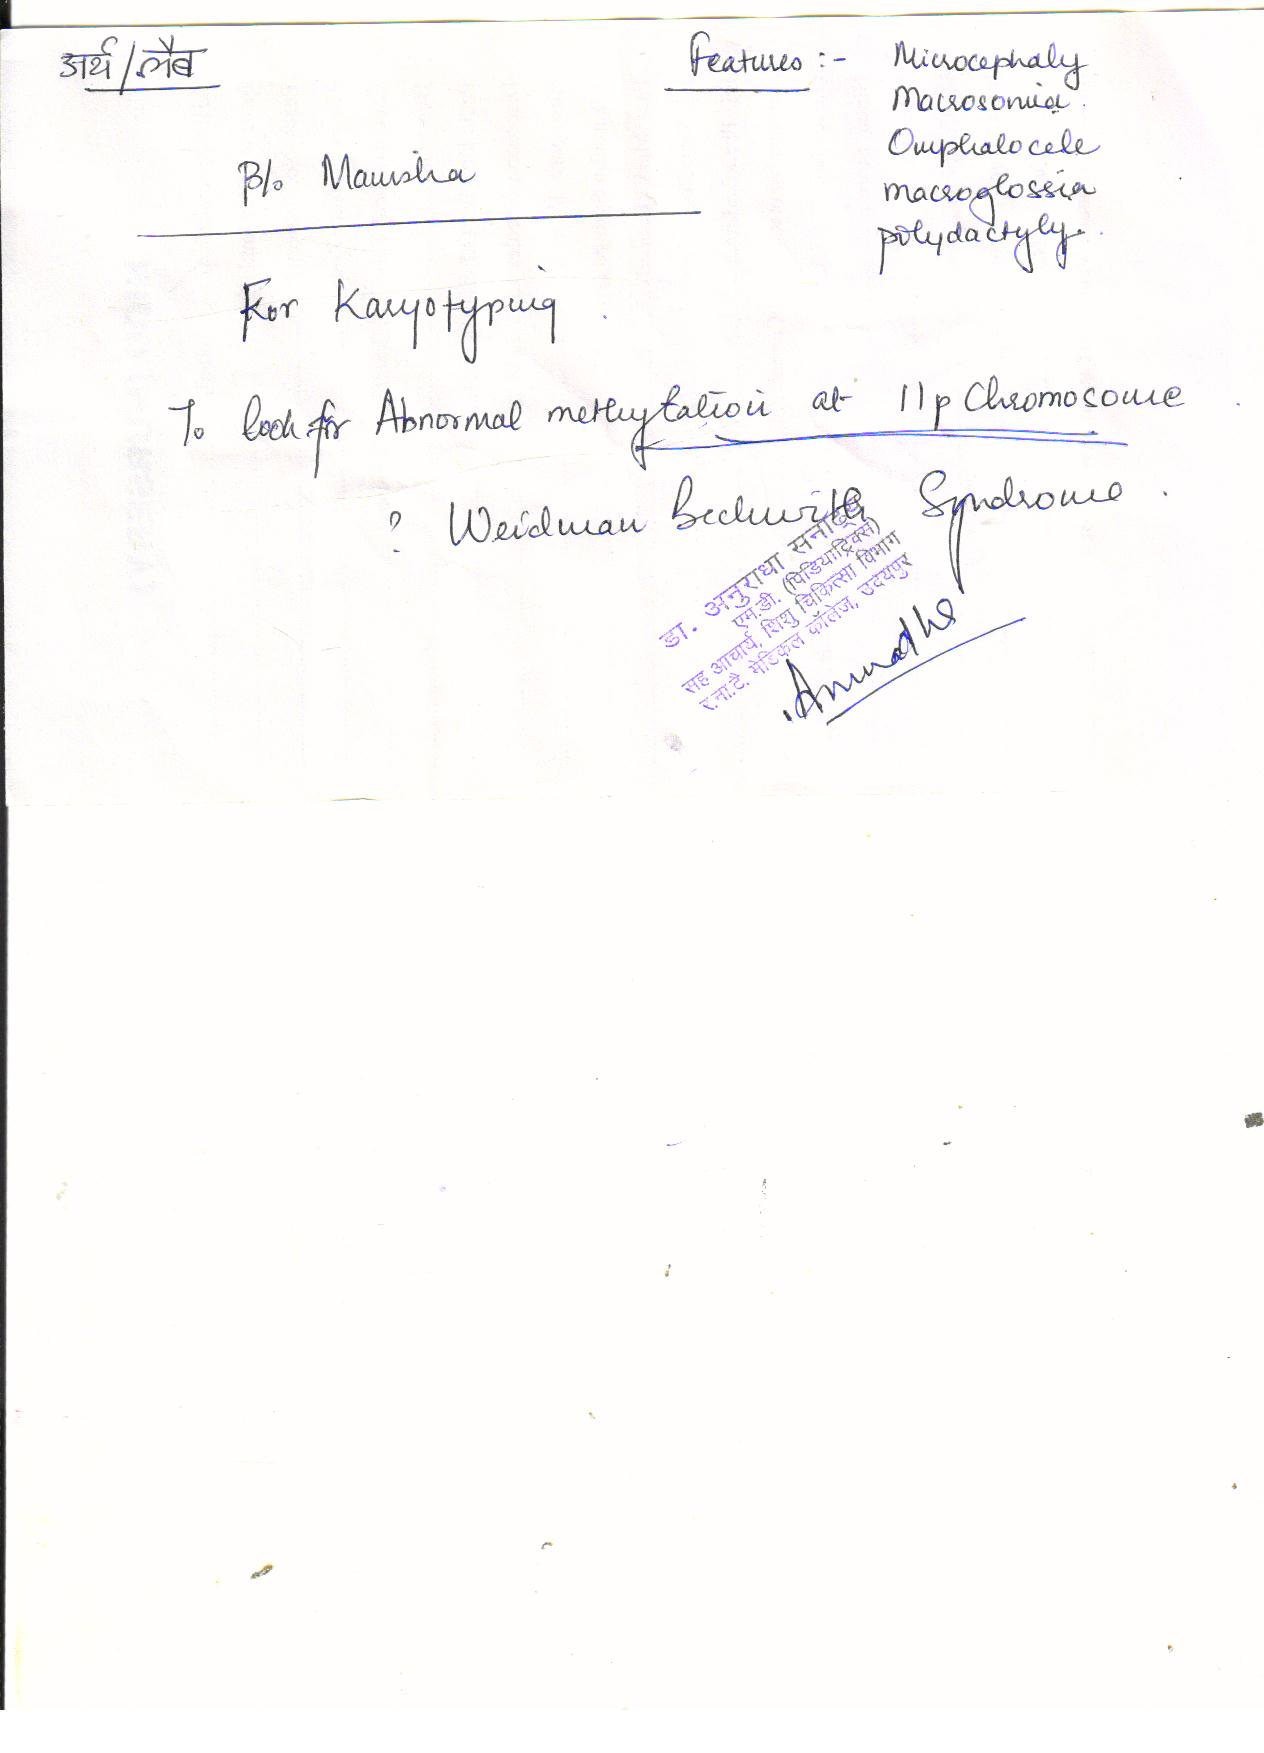 अर्थ/लैब
Features :- Microcephaly
Macrosomia.
Omphalocele
macroglossia
polydactyly.
B/o Manisha
For Karyotyping.
To look for Abnormal methylation at 11p Chromosome.
? Weidman Beckwith Syndrome.
डा. अनुराधा सनाढ्य
एम.डी. (पिडियाट्रिक्स)
सह आचार्य, शिशु चिकित्सा विभाग
र.ना.टै. मेडिकल कॉलेज, उदयपुर
Anuradha